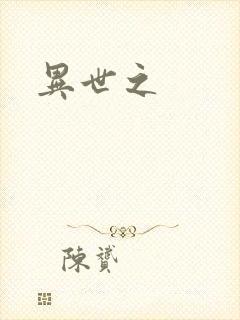 異世之
陳贇